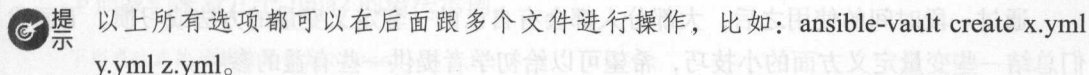 提示 以上所有选项都可以在后面跟多个文件进行操作，比如：ansible-vault create x.yml
y.yml z.yml。